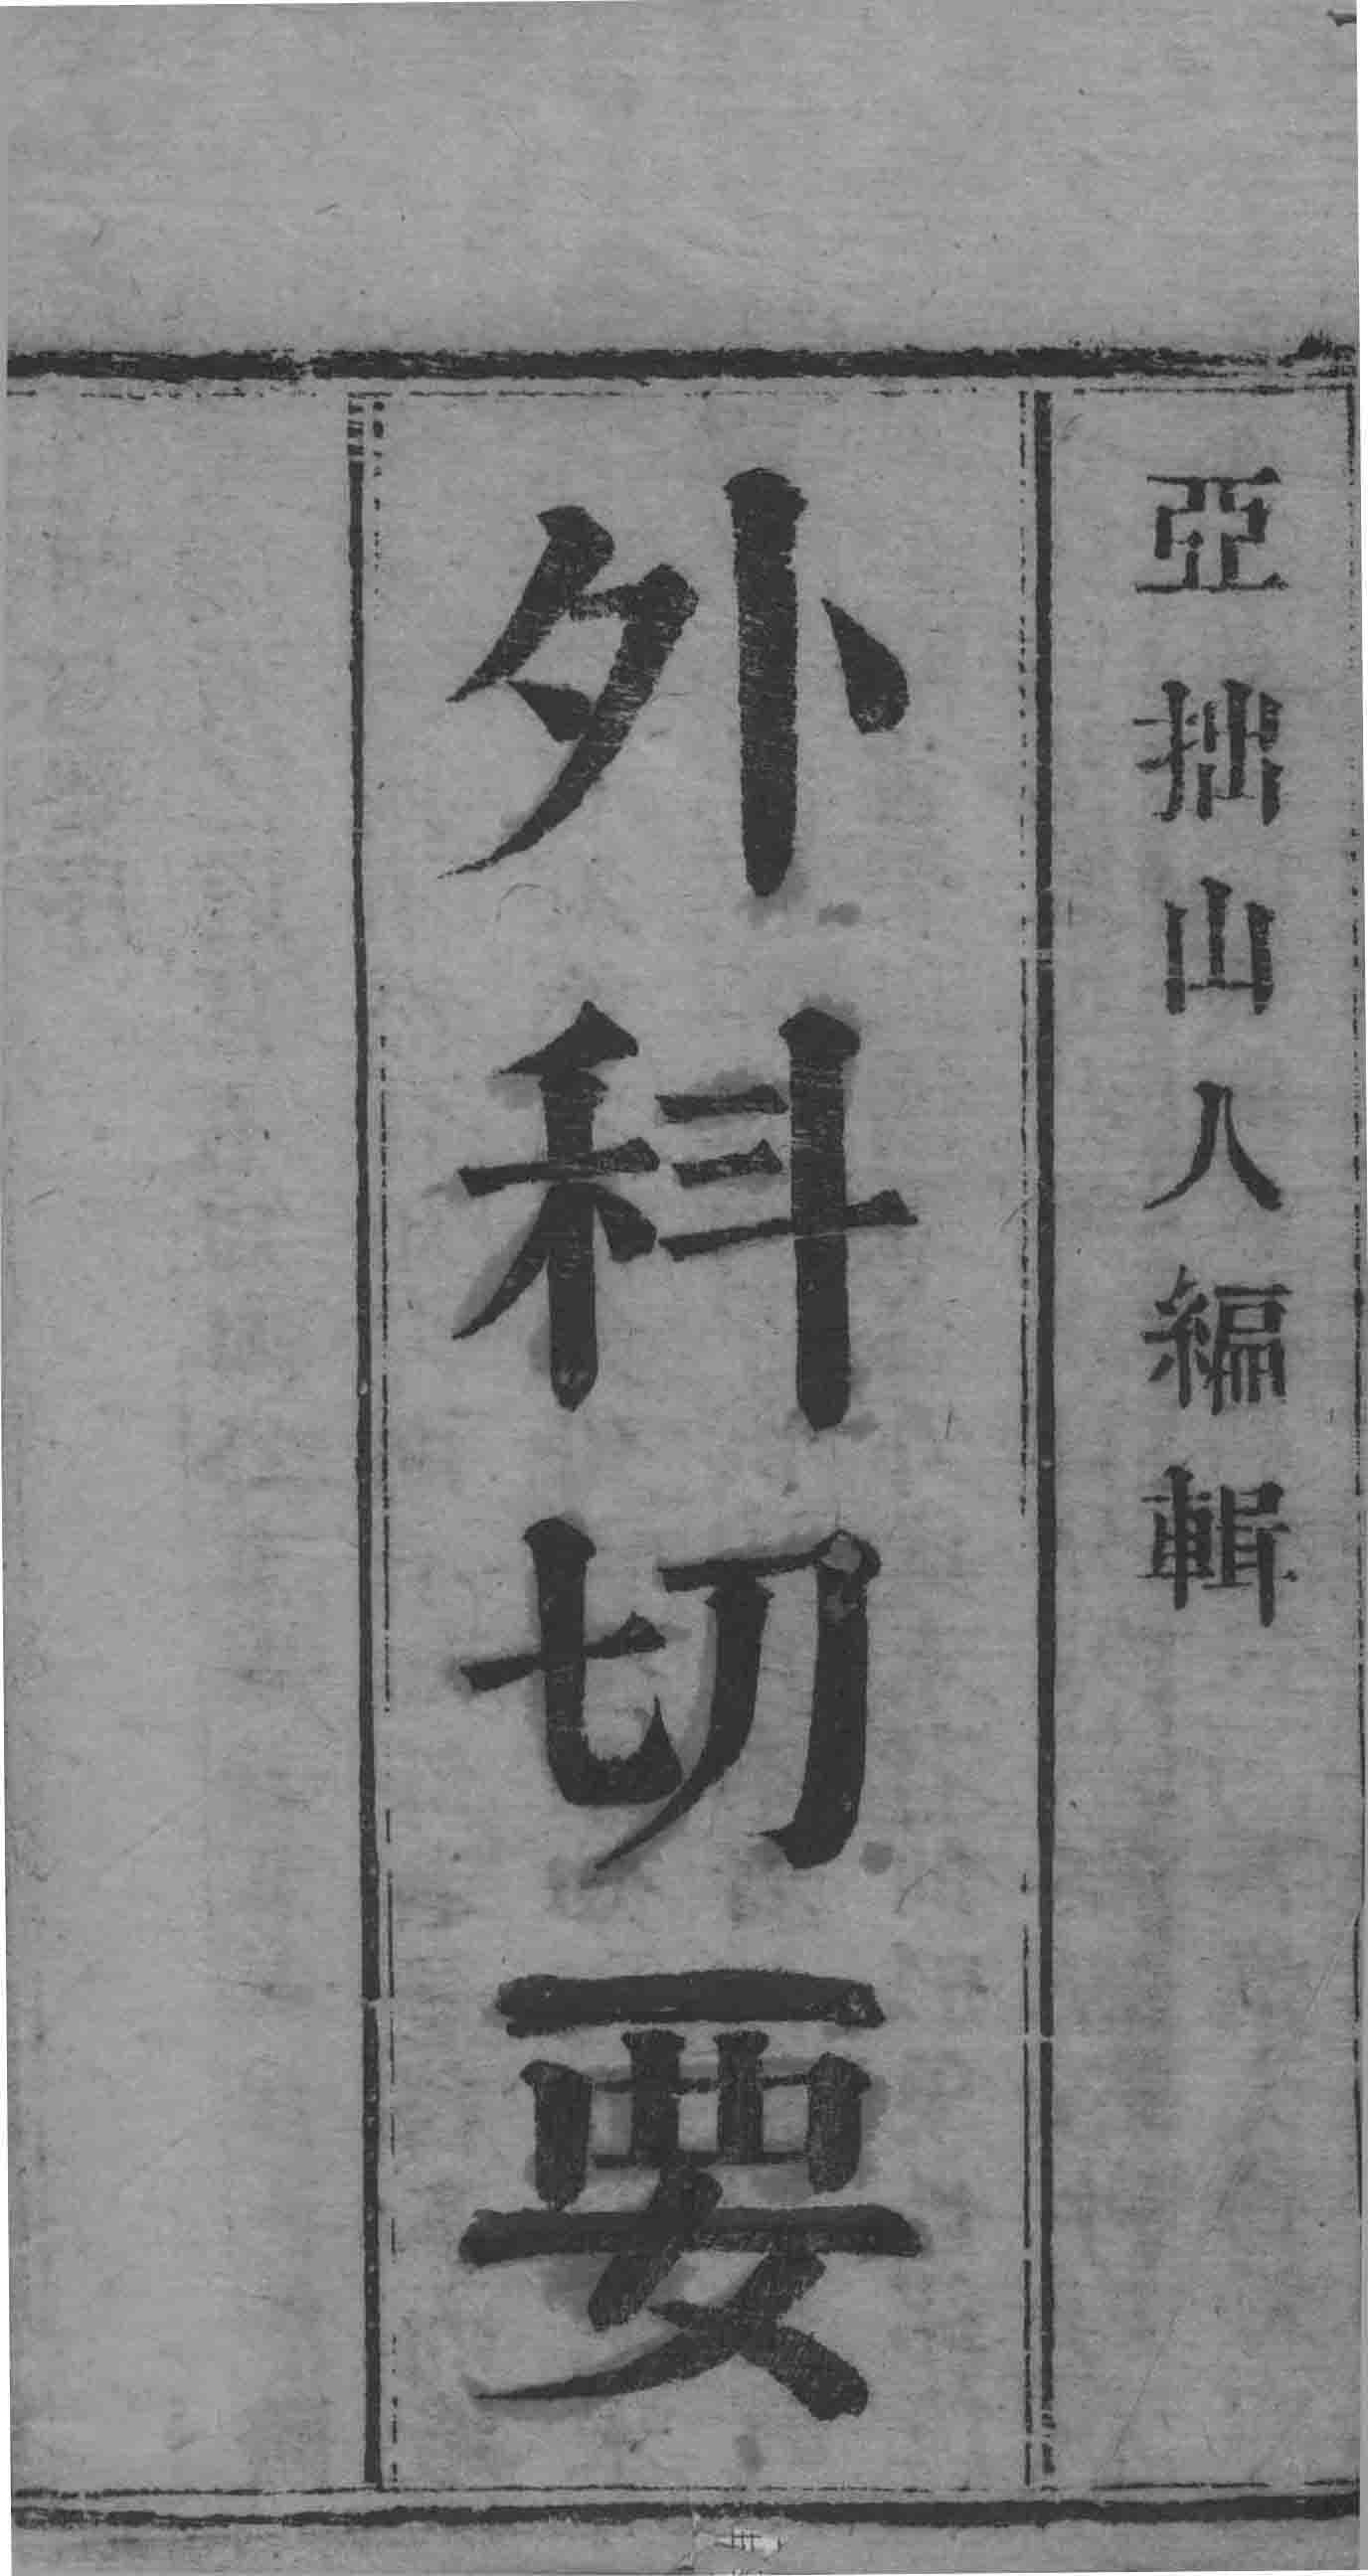 亞拙山人編輯
外科切要